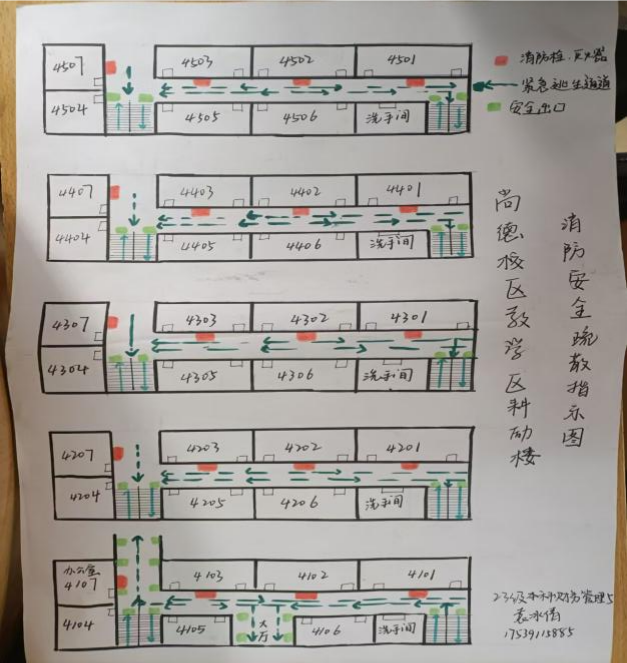 4507
4503
4502
4501
4504
4505
4506
洗手间
消防栓、灭火器
紧急逃生通道
安全出口
4407
4403
4402
4401
4404
4405
4406
洗手间
4307
4303
4302
4301
4304
4305
4306
洗手间
4207
4203
4202
4201
4204
4205
4206
洗手间
办公室
4107
4103
4102
4101
4104
4105
大厅
4106
洗手间
尚德校区教学区科励楼
消防安全疏散指示图
17539115885